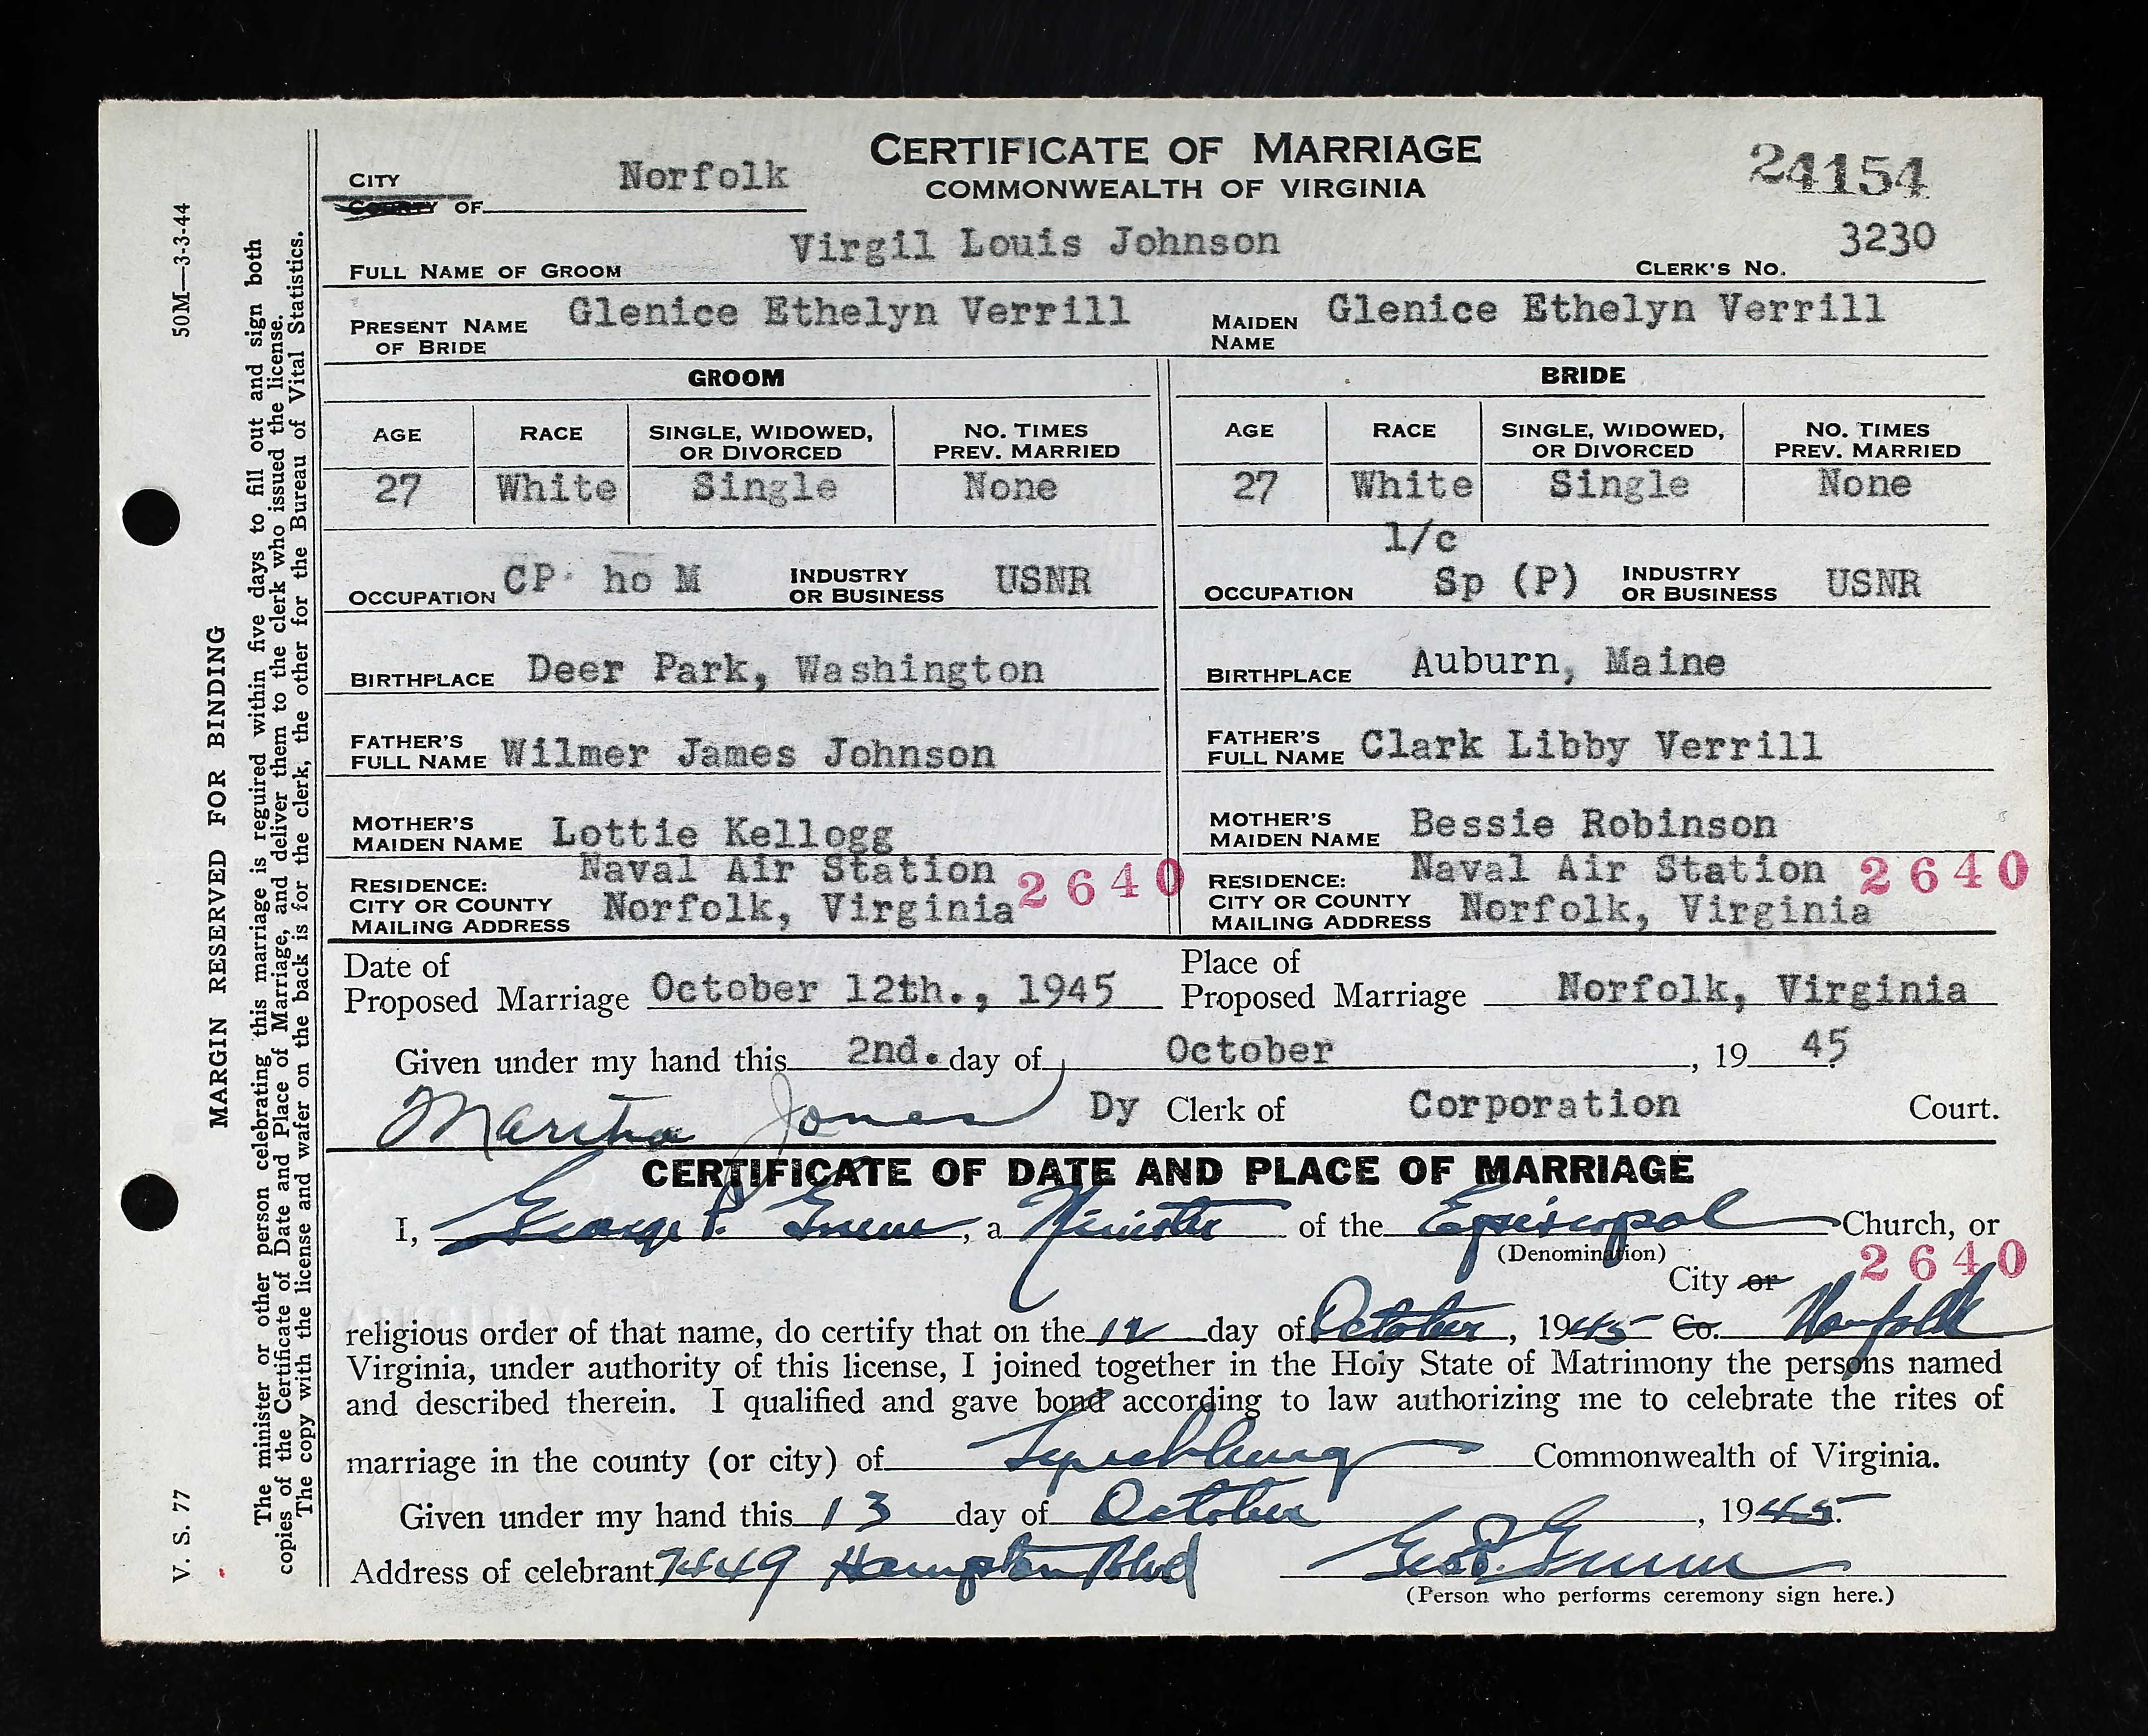 CERTIFICATE OF MARRIAGE
COMMONWEALTH OF VIRGINIA
24154
CITY
COUNTY OF Norfolk
Virgil Louis Johnson
FULL NAME OF GROOM
CLERK'S NO. 3230
PRESENT NAME OF BRIDE Glenice Ethelyn Verrill MAIDEN NAME Glenice Ethelyn Verrill
GROOM BRIDE
AGE RACE SINGLE, WIDOWED, OR DIVORCED NO. TIMES PREV. MARRIED AGE RACE SINGLE, WIDOWED, OR DIVORCED NO. TIMES PREV. MARRIED
27 White Single None 27 White Single None
1/c
OCCUPATION CP ho M INDUSTRY OR BUSINESS USNR OCCUPATION Sp (P) INDUSTRY OR BUSINESS USNR
BIRTHPLACE Deer Park, Washington BIRTHPLACE Auburn, Maine
FATHER'S FULL NAME Wilmer James Johnson FATHER'S FULL NAME Clark Libby Verrill
MOTHER'S MAIDEN NAME Lottie Kellogg MOTHER'S MAIDEN NAME Bessie Robinson
RESIDENCE: CITY OR COUNTY MAILING ADDRESS Naval Air Station Norfolk, Virginia 2640 RESIDENCE: CITY OR COUNTY MAILING ADDRESS Naval Air Station Norfolk, Virginia 2640
Date of Proposed Marriage October 12th., 1945 Place of Proposed Marriage Norfolk, Virginia
Given under my hand this 2nd. day of October, 19 45.
Martha Jones Dy Clerk of Corporation Court.
CERTIFICATE OF DATE AND PLACE OF MARRIAGE
I, George P. , a Minister of the Episcopal Church, or
(Denomination)
City or 2640
religious order of that name, do certify that on the 12 day of October, 1945 Co. Norfolk
Virginia, under authority of this license, I joined together in the Holy State of Matrimony the persons named
and described therein. I qualified and gave bond according to law authorizing me to celebrate the rites of
marriage in the county (or city) of Lynchburg Commonwealth of Virginia.
Given under my hand this 13 day of October, 1945.
Address of celebrant 7449 Hampton Blvd Geo P.
(Person who performs ceremony sign here.)
50M—3-3-44
MARGIN RESERVED FOR BINDING
V. S. 77
The minister or other person celebrating this marriage is reguired within five days to fill out and sign both
copies of the Certificate of Date and Place of Marriage, and deliver them to the clerk who issued the license.
The copy with the license and wafer on the back is for the clerk, the other for the Bureau of Vital Statistics.